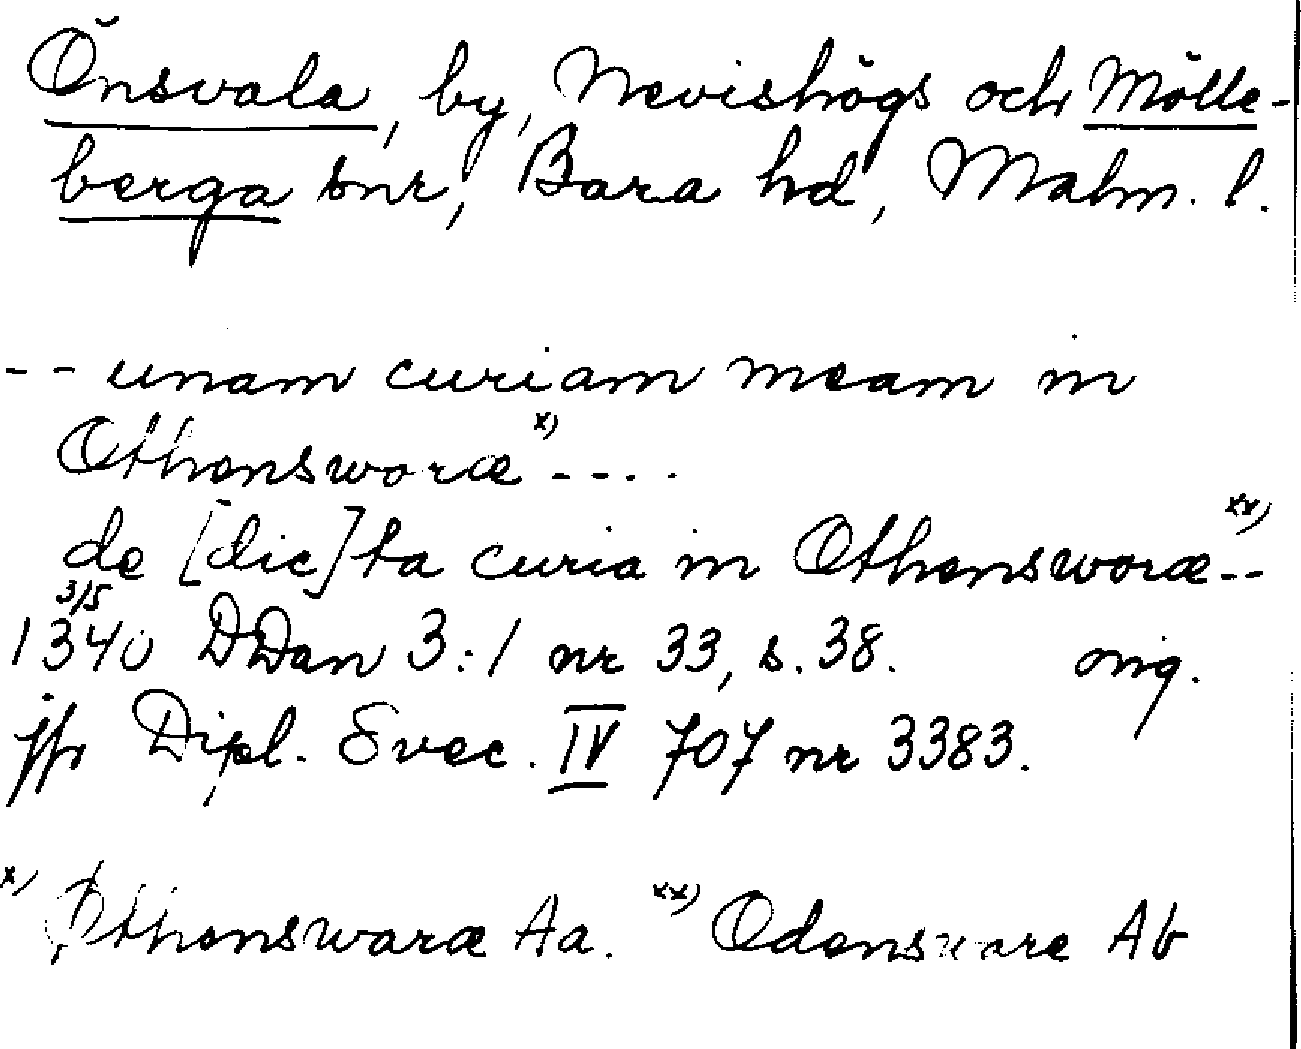 Önsvala, by, Nevishögs och Mölle-
berga snr, Bara hd, Malm. l.
-- unam curiam meam in
Othensworæ x) ----
de [dic]ta curia in Othensworæ xx) --
3/5
1340 DDan 3:1 nr 33, s. 38. orig.
jfr Dipl. Svec. IV 707 nr 3383.
x) Øthenswaræ Aa. xx) Odensware Ab